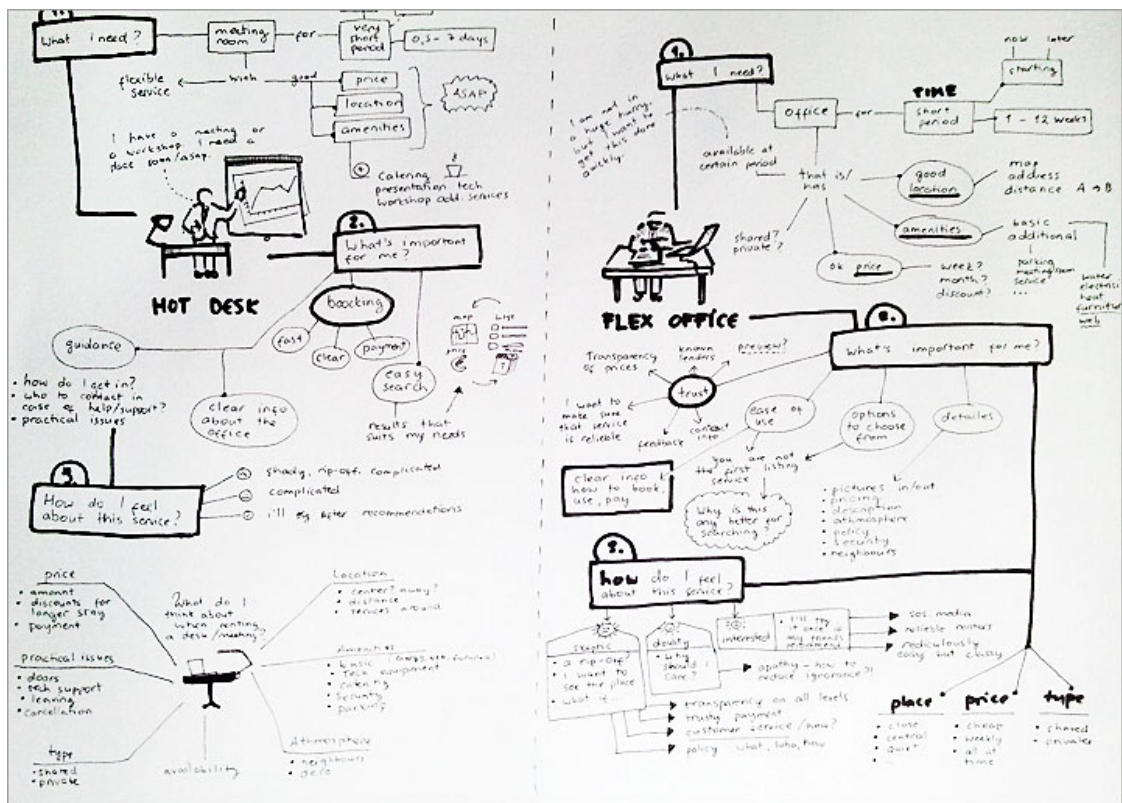 1.
What I need?
meeting
room
for
very
short
period
0,5 - 7 days
flexible
service
with
good
price
location
amenities
ASAP
I have a meeting or
a workshop. I need a
place soon/asap.
Catering
presentation tech
workshop add. services
HOT DESK
2.
What's important
for me?
boocking
fast
clear
payment
easy
search
map
list
price
results that
suits my needs
guidance
• how do I get in?
• who to contact in
case of help/support?
• practical issues
clear info
about the
office
3.
How do I feel
about this service?
shady, rip-off, complicated
complicated
i'll try after recommendations
What do I
think about
when renting
a desk/meeting?
price
• amount
• discounts for
longer stay
• payment
practical issues
• doors
• tech support
• leaving
• cancellation
type
• shared
• private
availability
Location
• center? away?
• distance
• services around
Amenities
• basic
• Tech equipment
• catering
• security
• parking
Athmosphere
• neighbours
• deco
1.
What I need?
I am not in
a huge hurry,
but I want to
get this done
quickly.
OFFICE
for
TIME
short
period
now
later
starting
1 - 12 weeks
available at
certain period
that is/
has
shared?
private?
good
location
map
address
distance A → B
amenities
basic
additional
parking
meeting room
service
...
water
electrici
heat
furniture
web
ok price
week?
month?
discount?
FLEX OFFICE
2.
What's important for me?
trust
Transparency
of prices
known
lenders
preview?
I want to
make sure
that service
is relieble
feedback
contact
info
ease of
use
clear info
how to book,
use, pay
options
to choose
from
you are not
the first listing
service
Why is this
any better for
searching?
detailes
• pictures in/out
• pricing
• description
• athmosphere
• policy
• security
• neighours
3.
how do I feel
about this service?
skeptic
• a rip-off?
• I want to
see the place
• what if...
doubty
• Why
should I
care?
interested
• I'll try
it once
my friends
recommend
sos. media
relieble renters
rediculously
easy but classy
apathy - how to
reduce ignorance?!
transparency on all levels
trusty payment
customer service/how?
policy what, who, how
place
• close
• central
• quiet
price
• cheap
• weekly
• all at
time
type
• shared
• privater